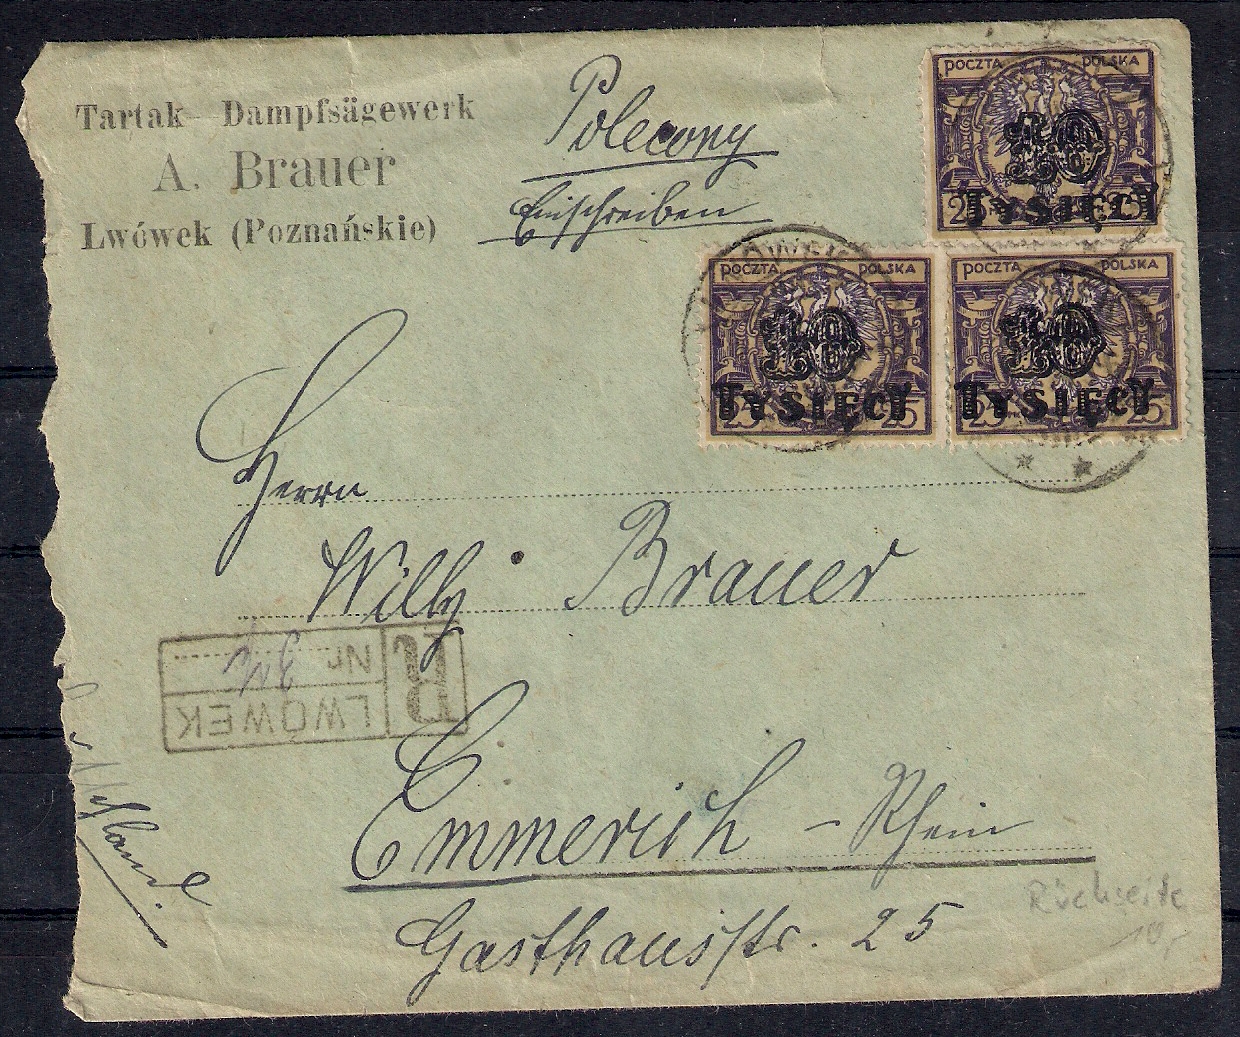 Tartak — Dampfsägewerk
A. Brauer
Lwówek (Poznańskie)
Polecony
Einschreiben
POCZTA POLSKA
10
TYSIĘCY
25 25
POCZTA POLSKA
10
TYSIĘCY
25 25
POCZTA POLSKA
10
TYSIĘCY
25 25
Herrn
Willy Brauer
R
LWÓWEK
Nr
Emmerich – Rhein
Gasthausstr. 25
Rückseite
10,-